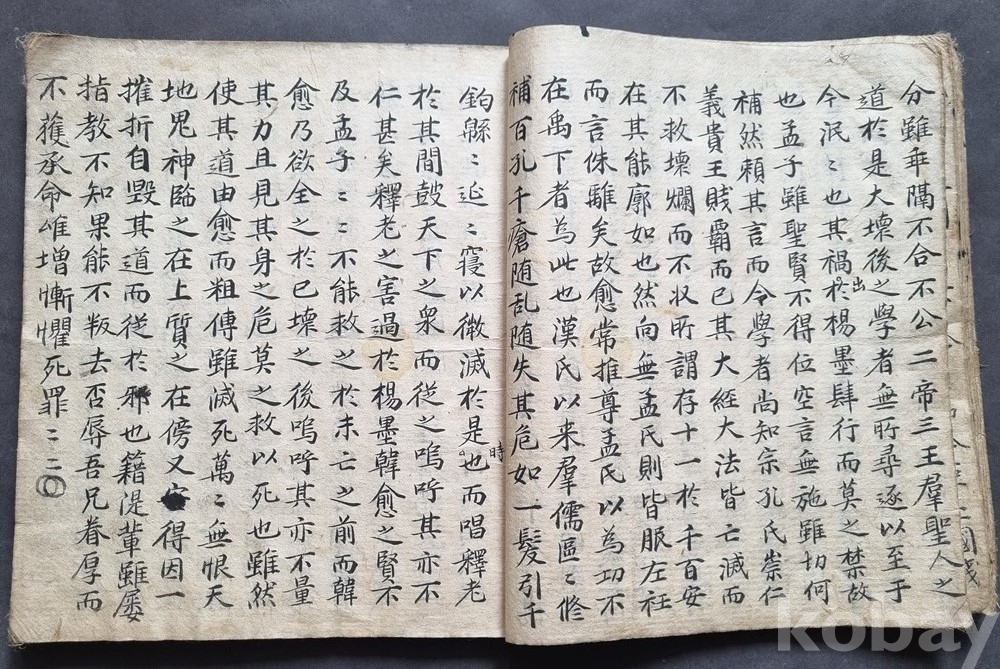 分雖乖隔不合不公二帝三王羣聖人之
道於是大壞後之學者無所尋逐以至于
今泯〻也其禍出於楊墨肆行而莫之禁故
也孟子雖聖賢不得位空言無施雖切何
補然賴其言而令學者尚知宗孔氏崇仁
義貴王賤覇而已其大經大法皆亡滅而
不救壞爛而不収所謂存十一於千百安
在其能廓如也然向無孟氏則皆服左衽
而言侏離矣故愈常推尊孟氏以為功不
在禹下者為此也漢氏以来羣儒區〻修
補百孔千瘡随乱随失其危如一髮引千
鈞緜〻延〻寝以微滅於是時也而唱釋老
於其間鼓天下之衆而從之嗚呼其亦不
仁甚矣釋老之害過於楊墨韓愈之賢不
及孟子〻〻不能救之於未亡之前而韓
愈乃欲全之於已壞之後嗚呼其亦不量
其力且見其身之危莫之救以死也雖然
使其道由愈而粗傳雖滅死萬〻無恨天
地鬼神臨之在上質之在傍又安得因一
摧折自毀其道而從於邪也籍湜輩雖屡
指教不知果能不叛去否辱吾兄眷厚而
不獲承命唯增慚懼死罪〻〻
kobay